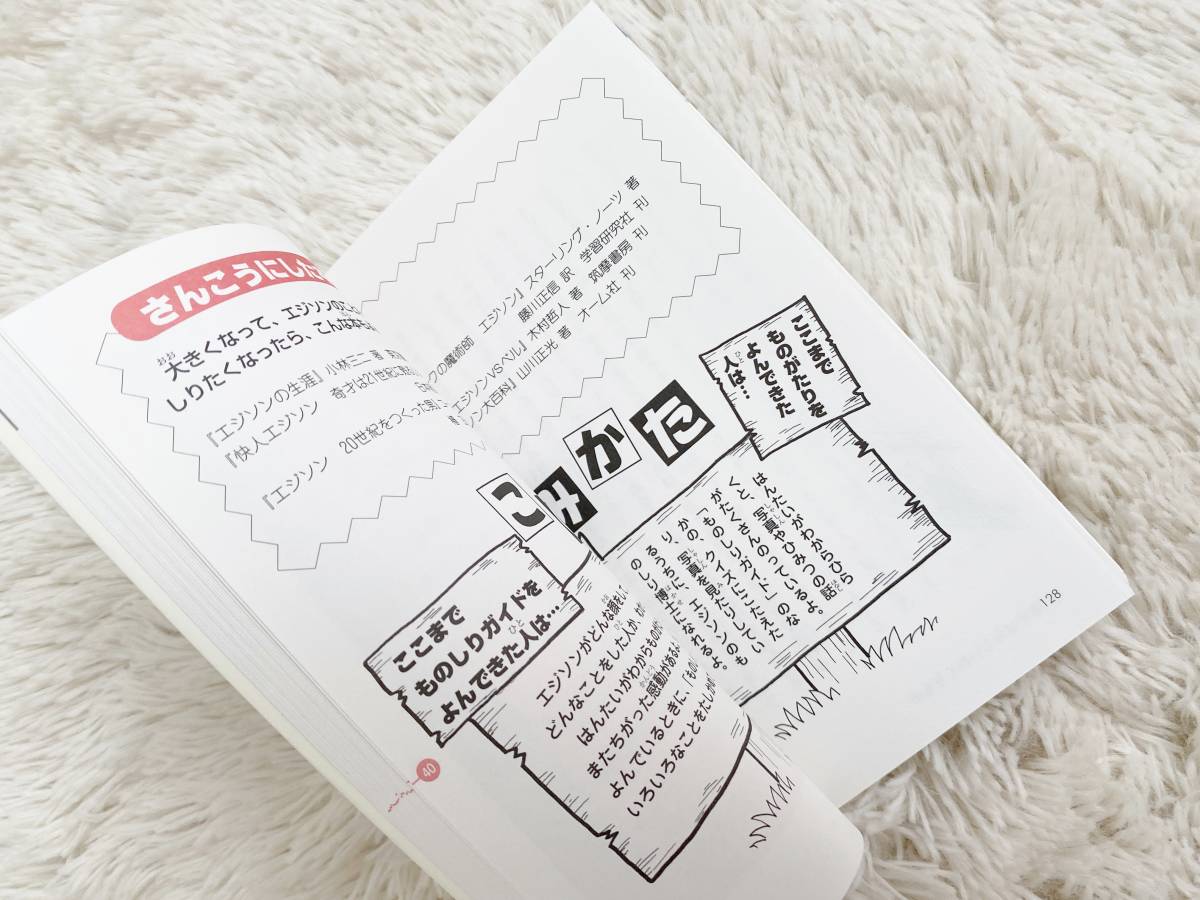 さんこうにした
大きくなって、エジソンのこ
しりたくなったら、こんな本も
『エジソンの生涯』小林三二
『快人エジソン　奇才は21世紀に
『エジソン　20世紀をつくった男
クの魔術師　エジソン』スターリング・ノーツ 著
藤川正信 訳 学習研究社 刊
エジソンVSベル』木村哲人 著 筑摩書房 刊
ソン大百科』山川正光 著 オーム社 刊
こ
み
か
た
ここまで
ものしりガイドを
よんできた人は…
エジソンがどんな
どんなことをした人か、
はんたいがわからもの
またちがった感動があるよ
よんでいるときに、「もの
いろいろなことをたしか
ここまで
ものがたりを
よんできた
人は…
はんたいがわからひら
くと、写真やひみつの話
がたくさんのっているよ。
「ものしりガイド」のな
かの、クイズにこたえた
り、写真を見たりしてい
るうちに、エジソンのも
のしり博士になれるよ。
40
128